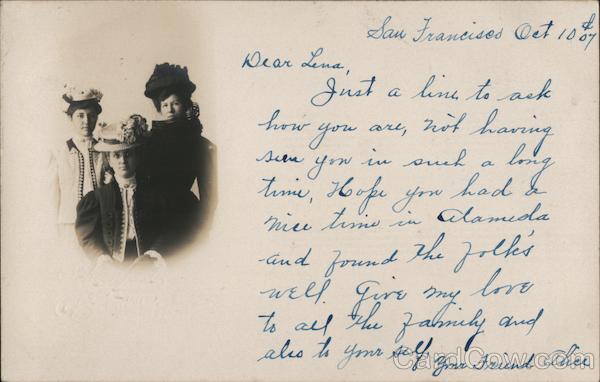 San Francisco Oct 10th 07
Dear Lena,
Just a line to ask
how you are, not having
seen you in such a long
time. Hope you had a
nice time in Alameda
and found the folk's
well. Give my love
to all the family and
also to your self
Your Friend Alice
CardCow.com